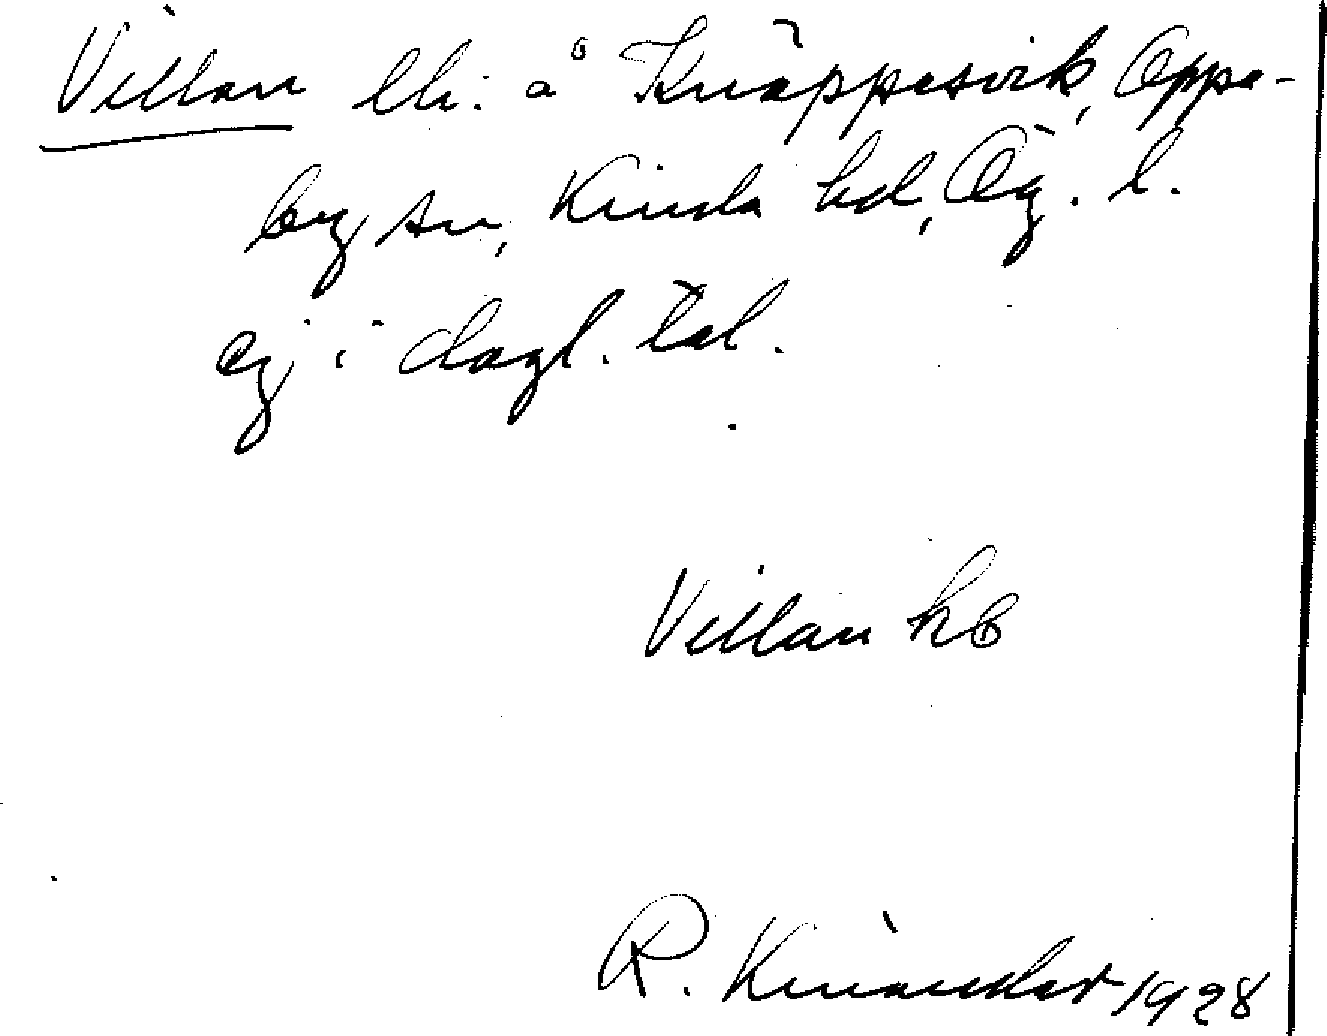 Villan lh. å Knäppesvik, Oppe-
by sn, Kinda hd, Ög. l.
ej i dagl. tal.
Villan hb
R. Kinander 1928